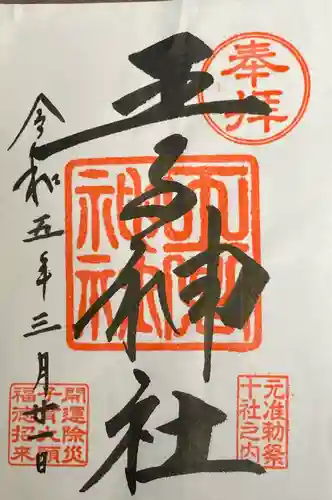 奉拝
王子神社
王子神社
令和五年三月廿一日
元准勅祭
十社之内
開運除災
福徳招来